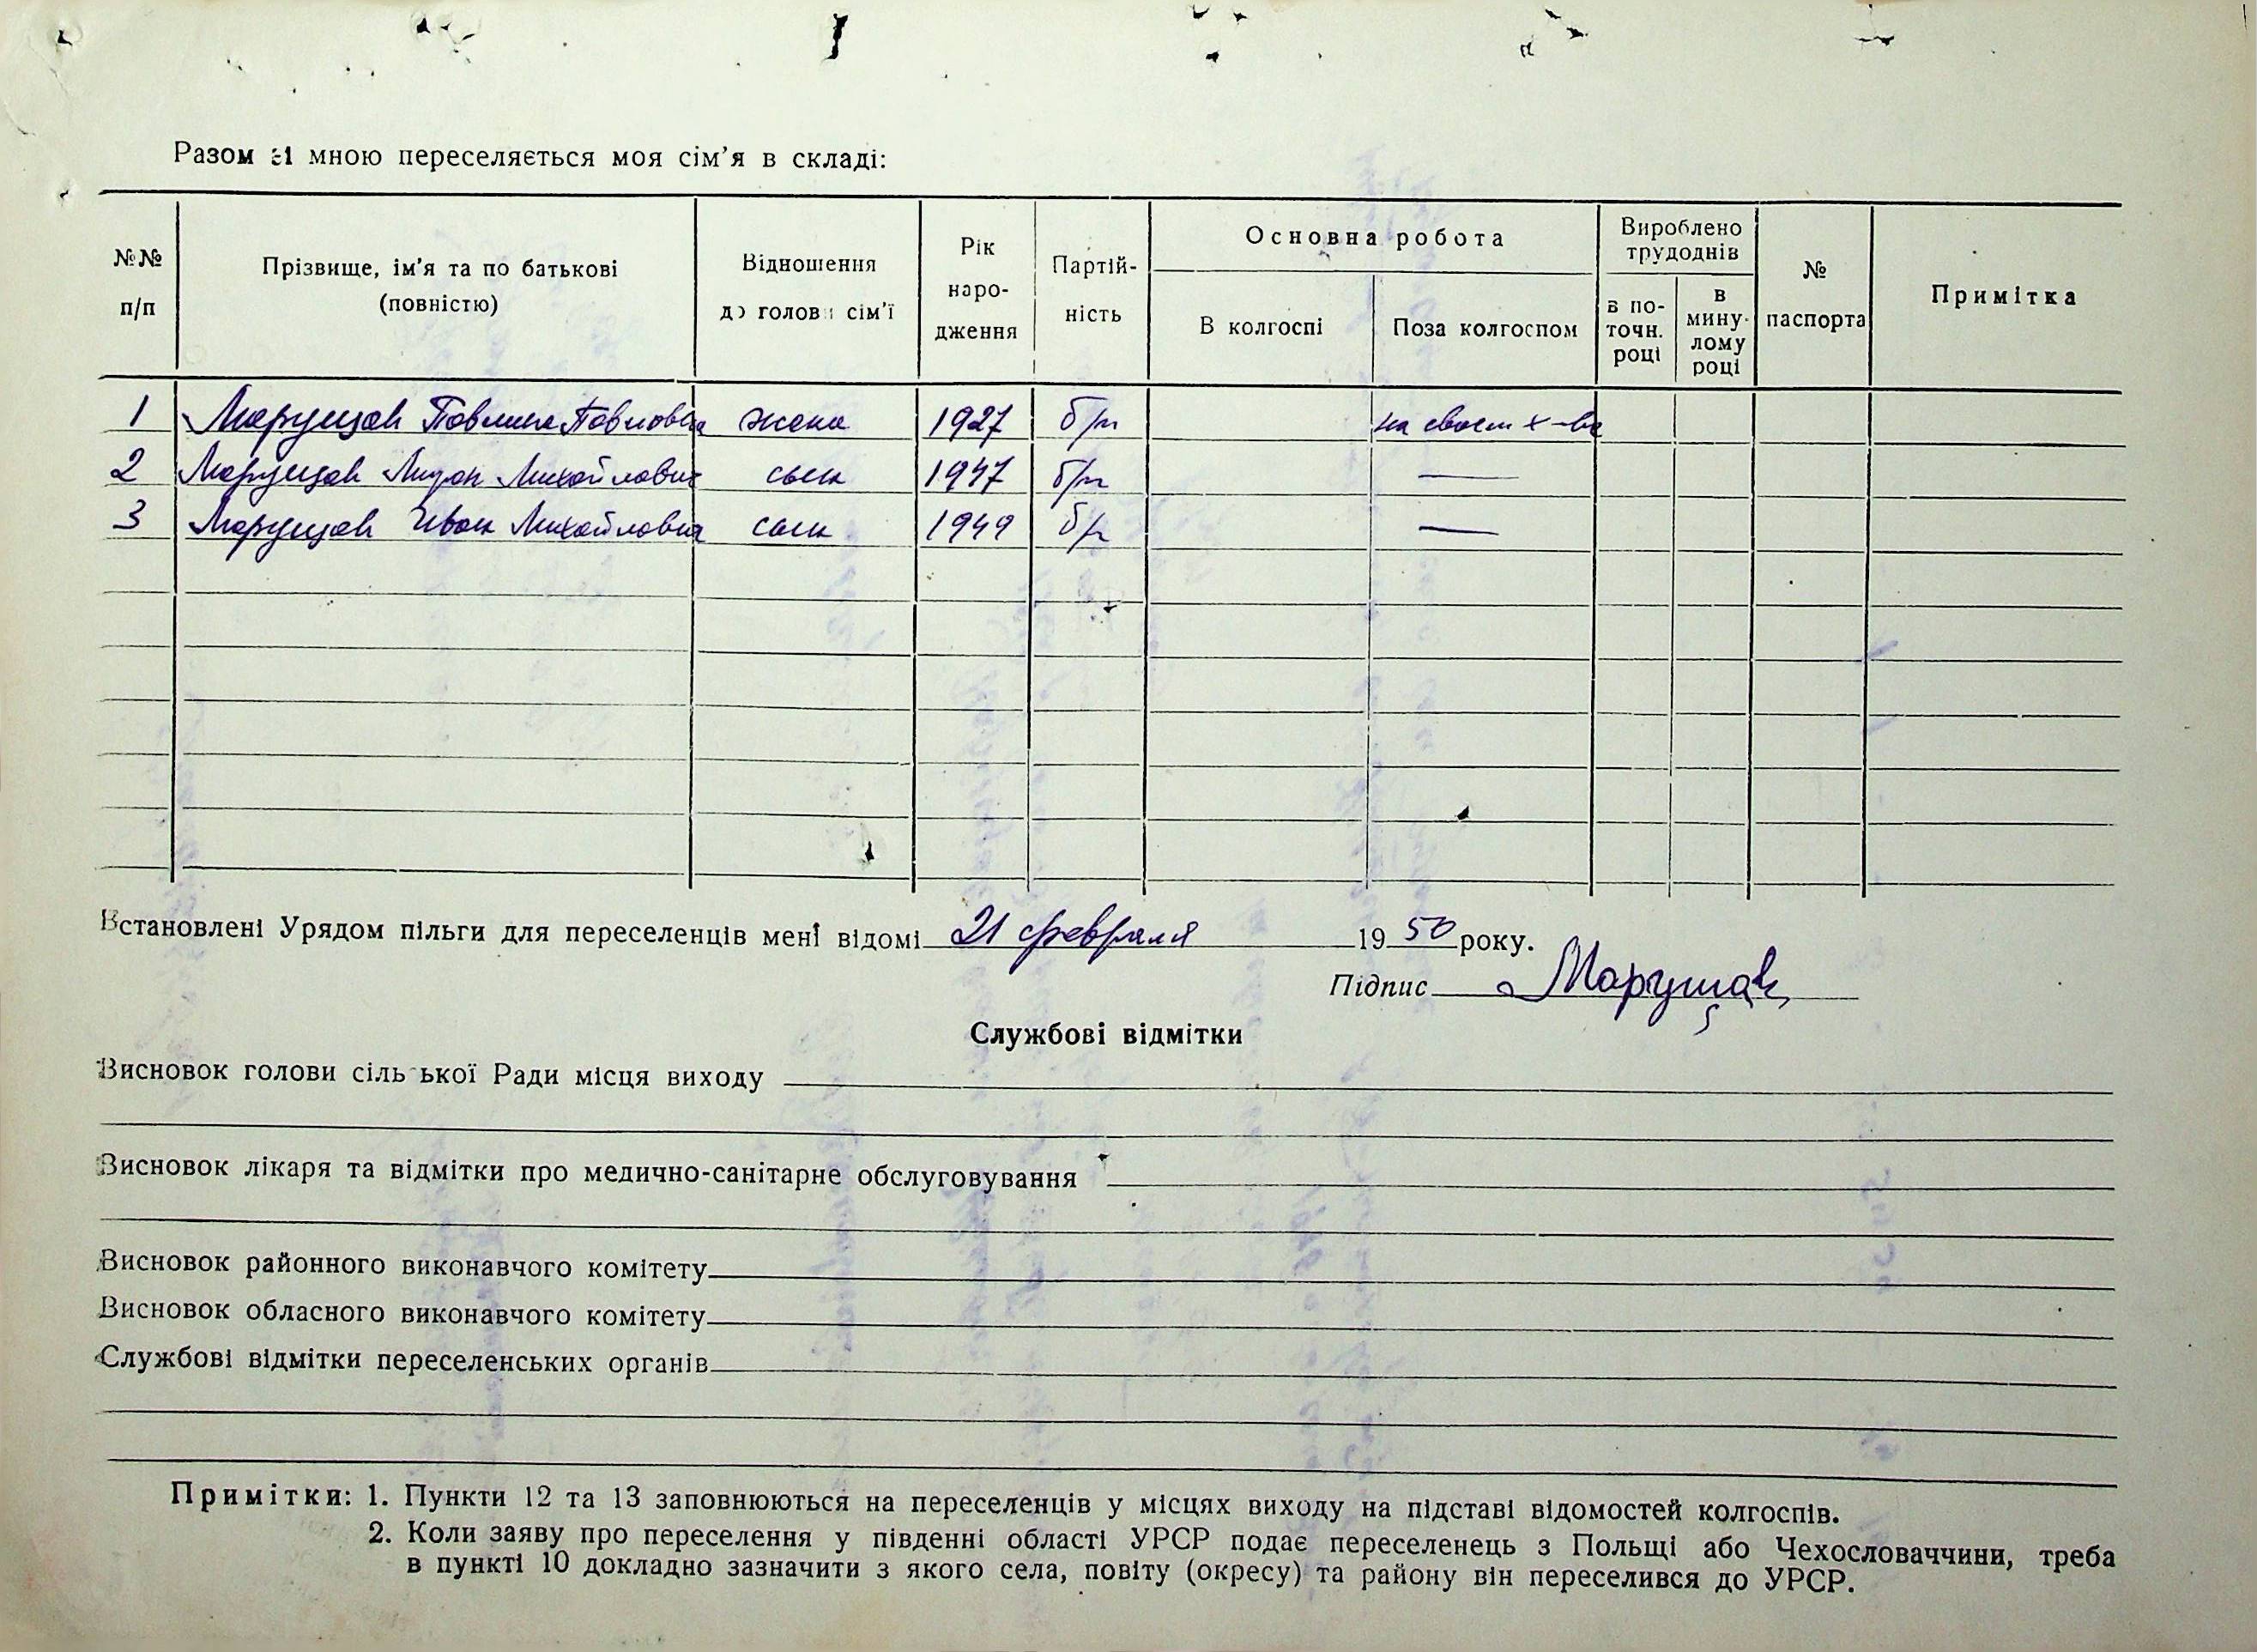 Разом зі мною переселяється моя сім’я в складі:
№№ п/п
Прізвище, ім’я та по батькові (повністю)
Відношення до голови сім’ї
Рік народження
Партійність
Основна робота
В колгоспі
Поза колгоспом
Вироблено трудоднів
в поточн. році
в минулому році
№ паспорта
Примітка
1 Марущак Павлина Павловна жена 1927 б/п на своем х-ве
2 Марущак Мирон Михайлович сын 1947 б/п —
3 Марущак Иван Михайлович сын 1949 б/п —
Встановлені Урядом пільги для переселенців мені відомі 21 февраля 1950 року.
Підпис Марущак
Службові відмітки
Висновок голови сільської Ради місця виходу
Висновок лікаря та відмітки про медично-санітарне обслуговування
Висновок районного виконавчого комітету
Висновок обласного виконавчого комітету
Службові відмітки переселенських органів
Примітки: 1. Пункти 12 та 13 заповнюються на переселенців у місцях виходу на підставі відомостей колгоспів.
2. Коли заяву про переселення у південні області УРСР подає переселенець з Польщі або Чехословаччини, треба
в пункті 10 докладно зазначити з якого села, повіту (окресу) та району він переселився до УРСР.